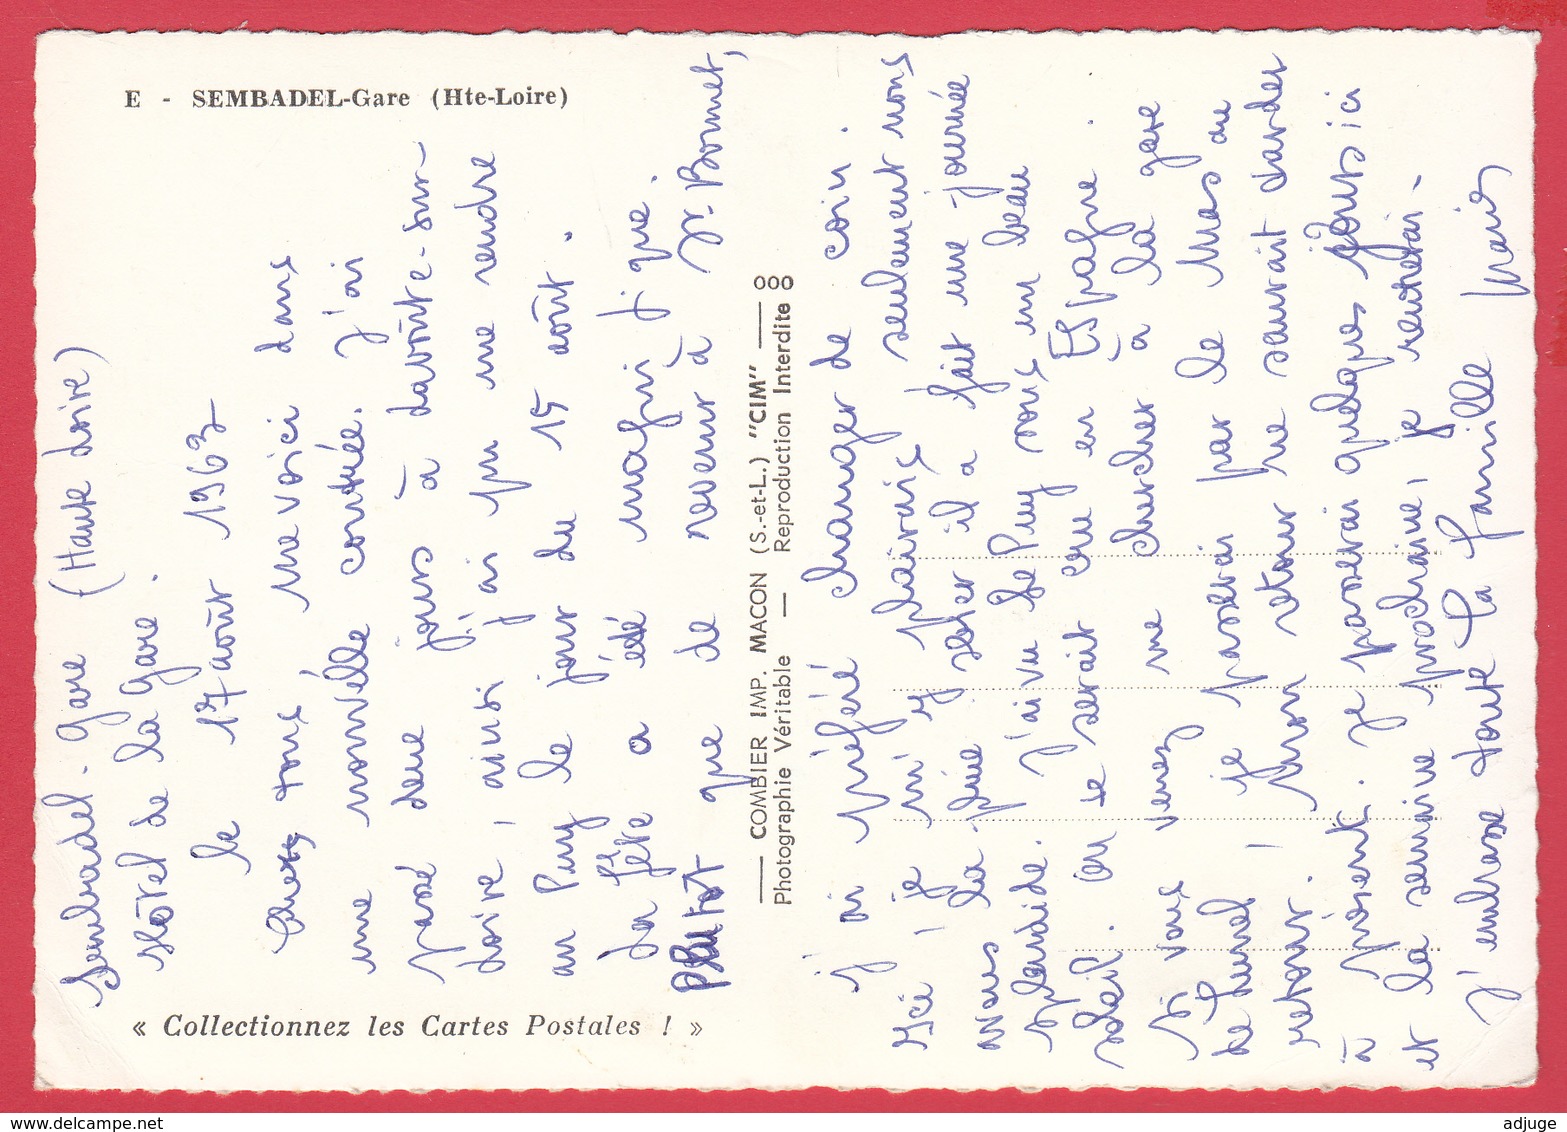 E - SEMBADEL-Gare (Hte-Loire)
« Collectionnez les Cartes Postales ! »
COMBIER IMP. MACON (S.-et-L.) "CIM"
Photographie Véritable — Reproduction Interdite
Sembadel-gare (Haute Loire)
Hôtel de la gare.
le 17 août 1963
Chers tous, me voici dans
une nouvelle contrée. J'ai
passé deux jours à Lavoûte-sur-
Loire, ainsi j'ai pu me rendre
au Puy le jour du 15 août.
La fête a été magnifique.
plutôt que de revenir à St-Bonnet,
j'ai préféré changer de coin.
Ici, je m'y plairais seulement nous
avons la pluie hier il a fait une journée
splendide. J'ai vu Le Puy sous un beau
soleil. On se serait cru en Espagne.
Si vous venez me chercher à la gare
de Lunel, je passerai par le Mas au
retour. Mon retour ne saurait tarder
à présent. Je passerai quelques jours ici
et la semaine prochaine, je rentrerai.
J'embrasse toute la famille
adjuge